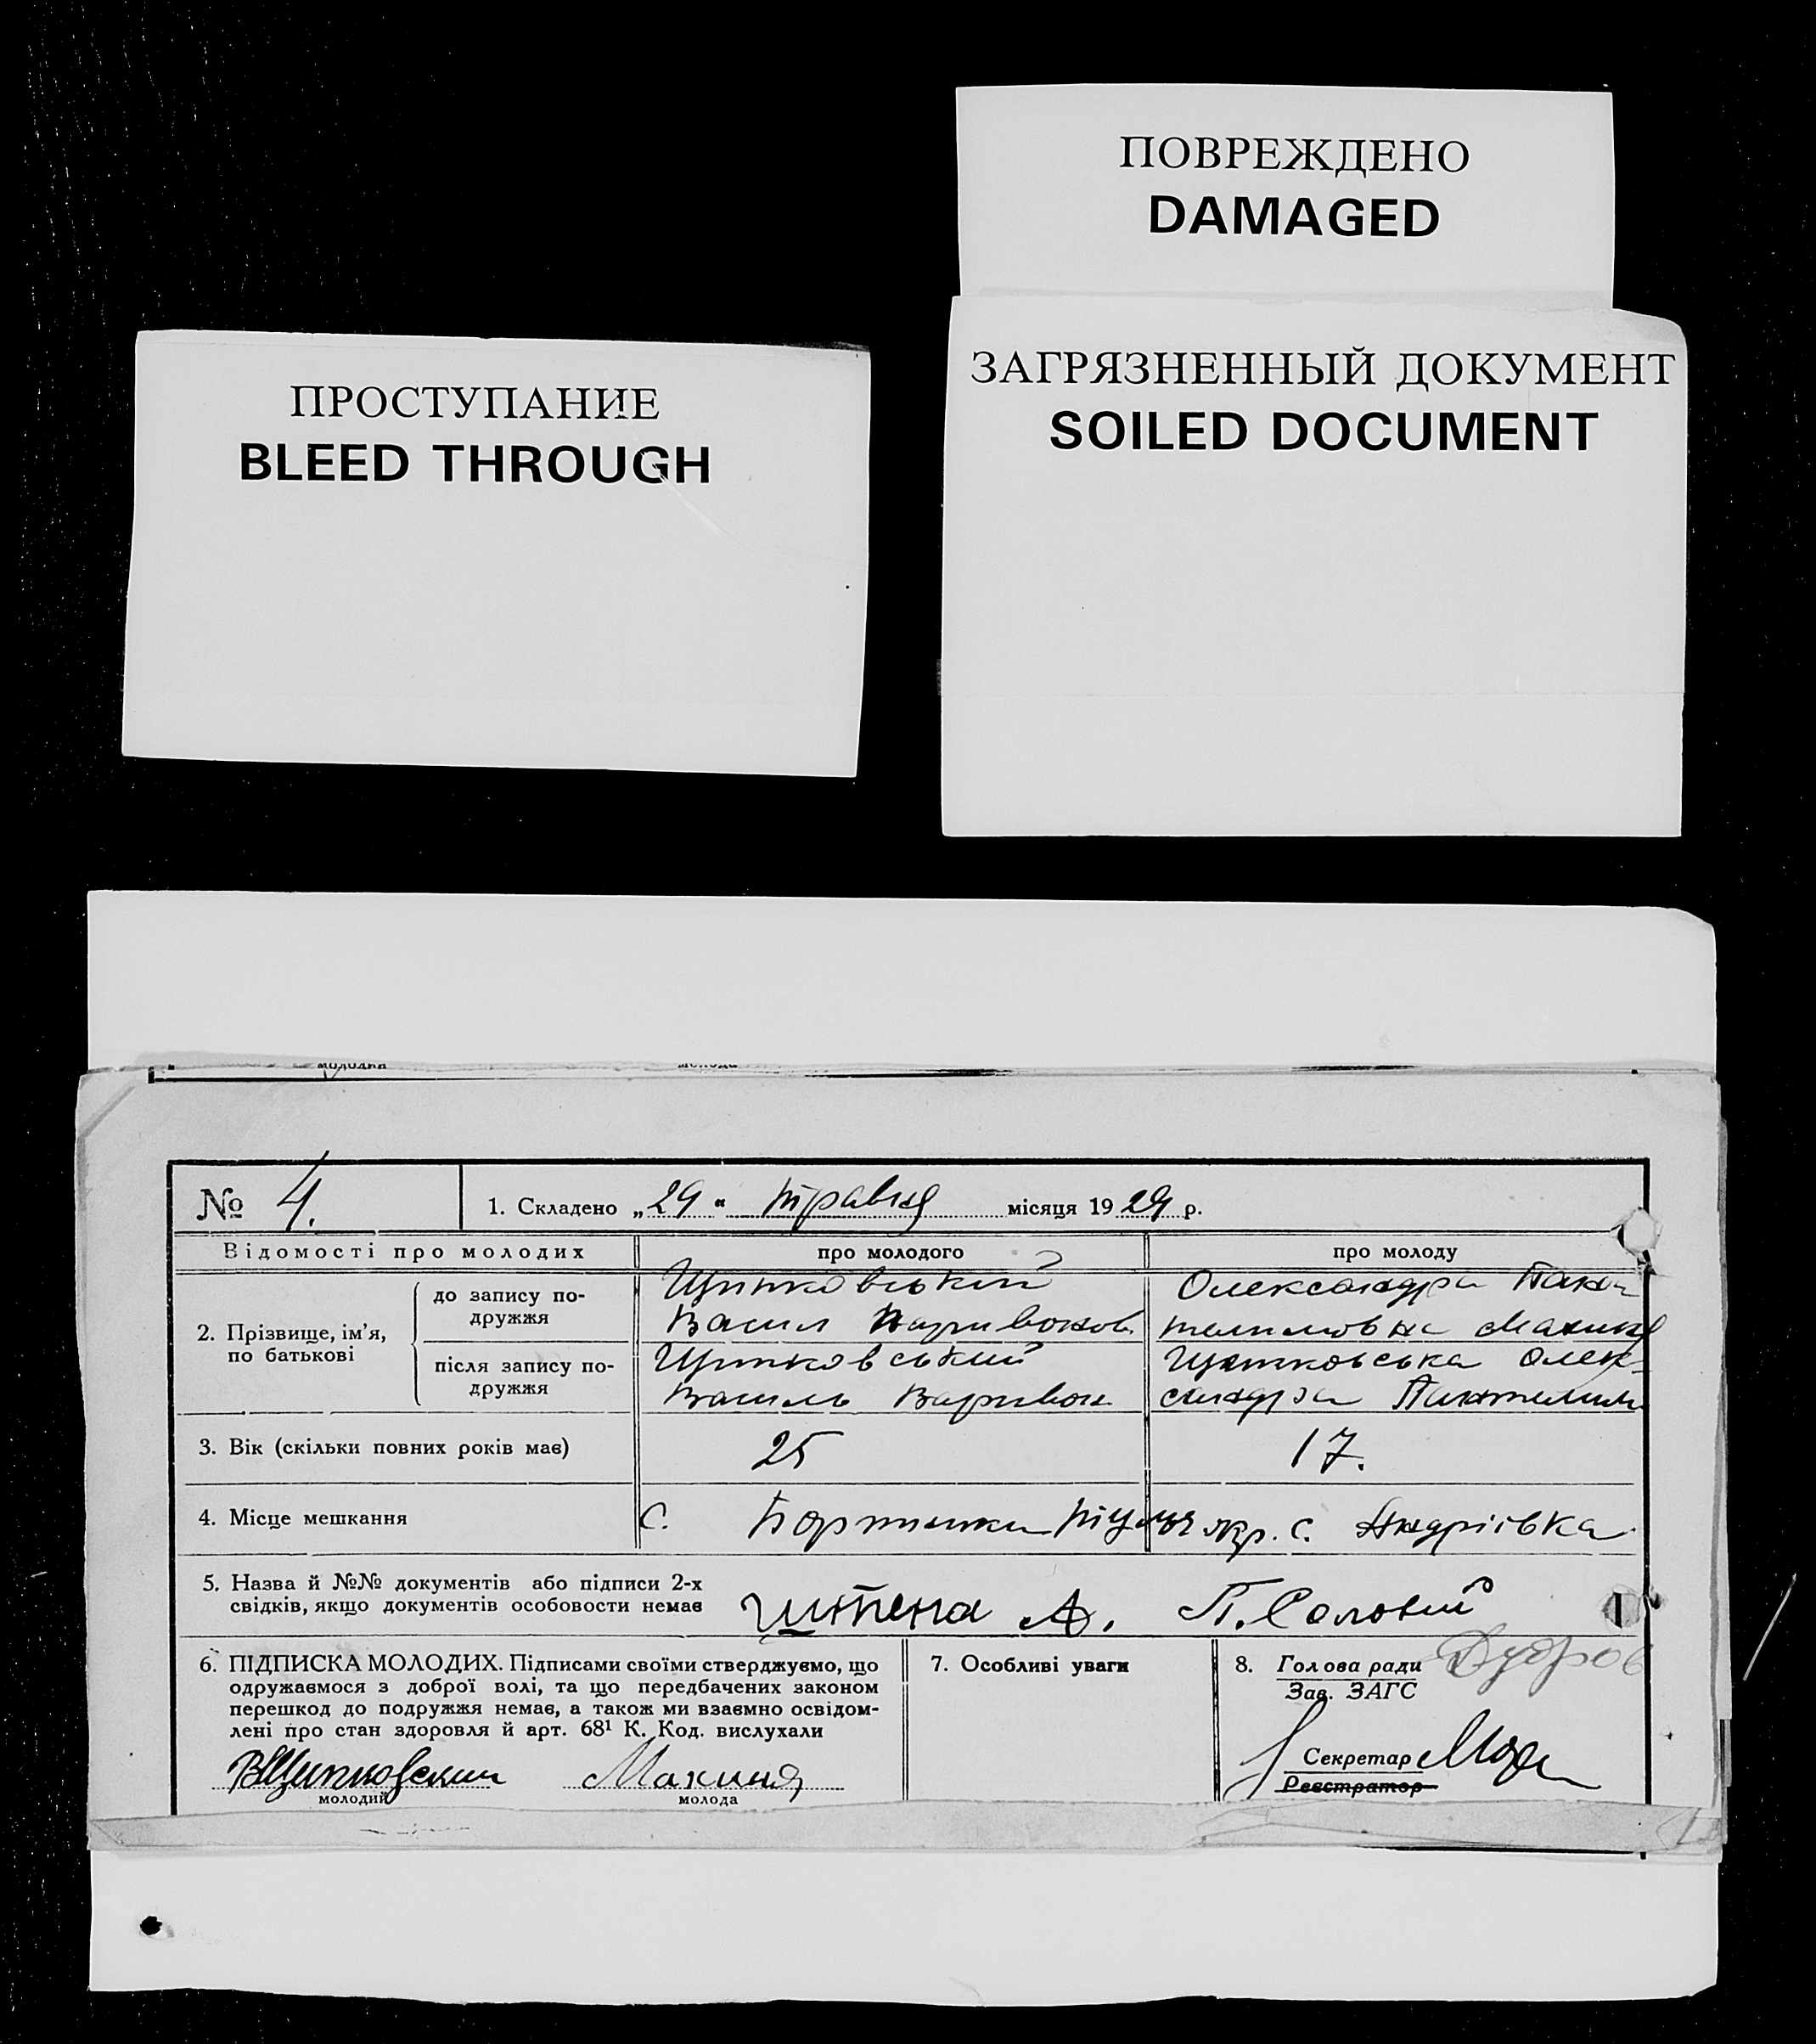 ПОВРЕЖДЕНО
DAMAGED
ПРОСТУПАНИЕ
BLEED THROUGH
ЗАГРЯЗНЕННЫЙ ДОКУМЕНТ
SOILED DOCUMENT
№ 4.
1. Складено „29“ травня місяця 1929 р.
Відомості про молодих
про молодого
про молоду
2. Прізвище, ім'я, по батькові
до запису по-
дружжя
Щипковський
Василь
Олександра Пан-
после запису по-
дружжя
Щипковський
Василь Варивон
Щипковська Олек-
сандра Пантелим
3. Вік (скільки повних років має)
25
17.
4. Місце мешкання
с.
с. Андріївка
5. Назва й №№ документів або підписи 2-х
свідків, якщо документів особовости немає
А. П. Соловий
6. ПІДПИСКА МОЛОДИХ. Підписами своїми стверджуємо, що
одружаємося з доброї волі, та що передбачених законом
перешкод до подружжя немає, а також ми взаємно освідом-
лені про стан здоровля й арт. 68¹ К. Код. вислухали
ВЩипковский
Макиня
молодий
молода
7. Особливі уваги
8. Голова ради
Зав. ЗАГС
Секретар
Реєстратор